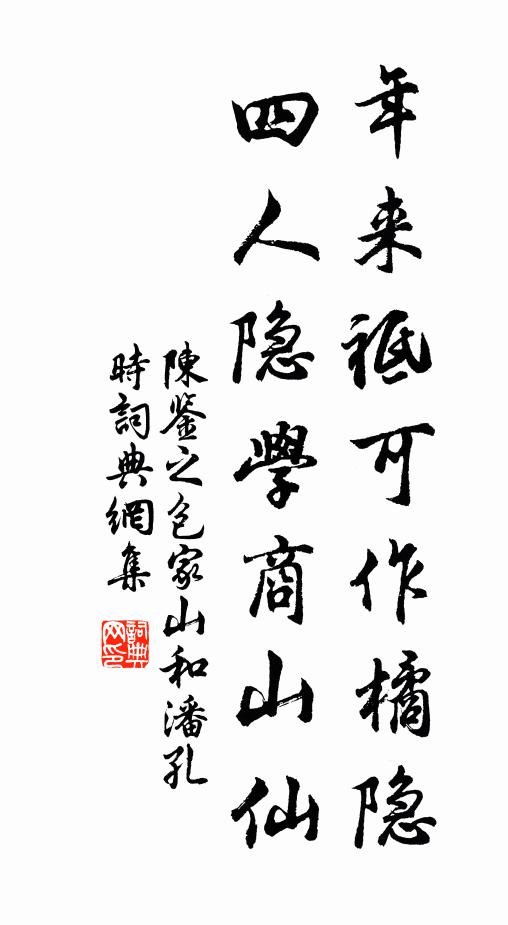 年来祗可作橘隐
四人隐學商山仙
陳鉴之包家山和潘孔
時詞典網集
詞典网印